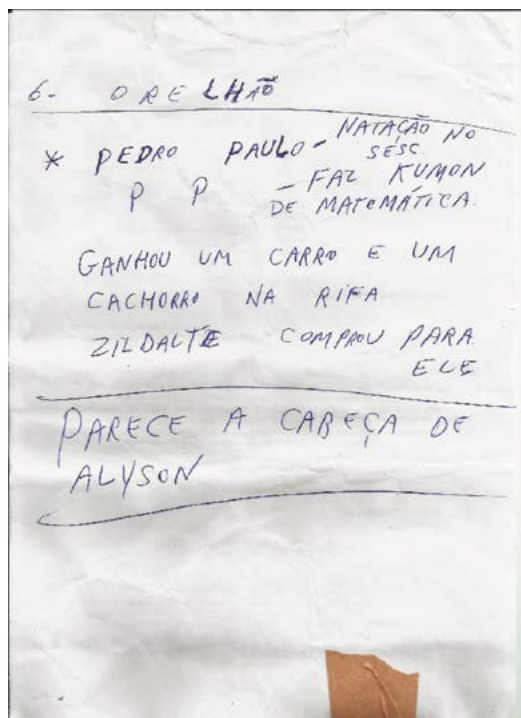 6- ORELHÃO
* PEDRO PAULO - NATAÇÃO NO SESC.
P P - FAZ KUMON DE MATEMÁTICA.
GANHOU UM CARRO E UM
CACHORRO NA RIFA
ZILDALTE COMPROU PARA
ELE
PARECE A CABEÇA DE
ALYSON